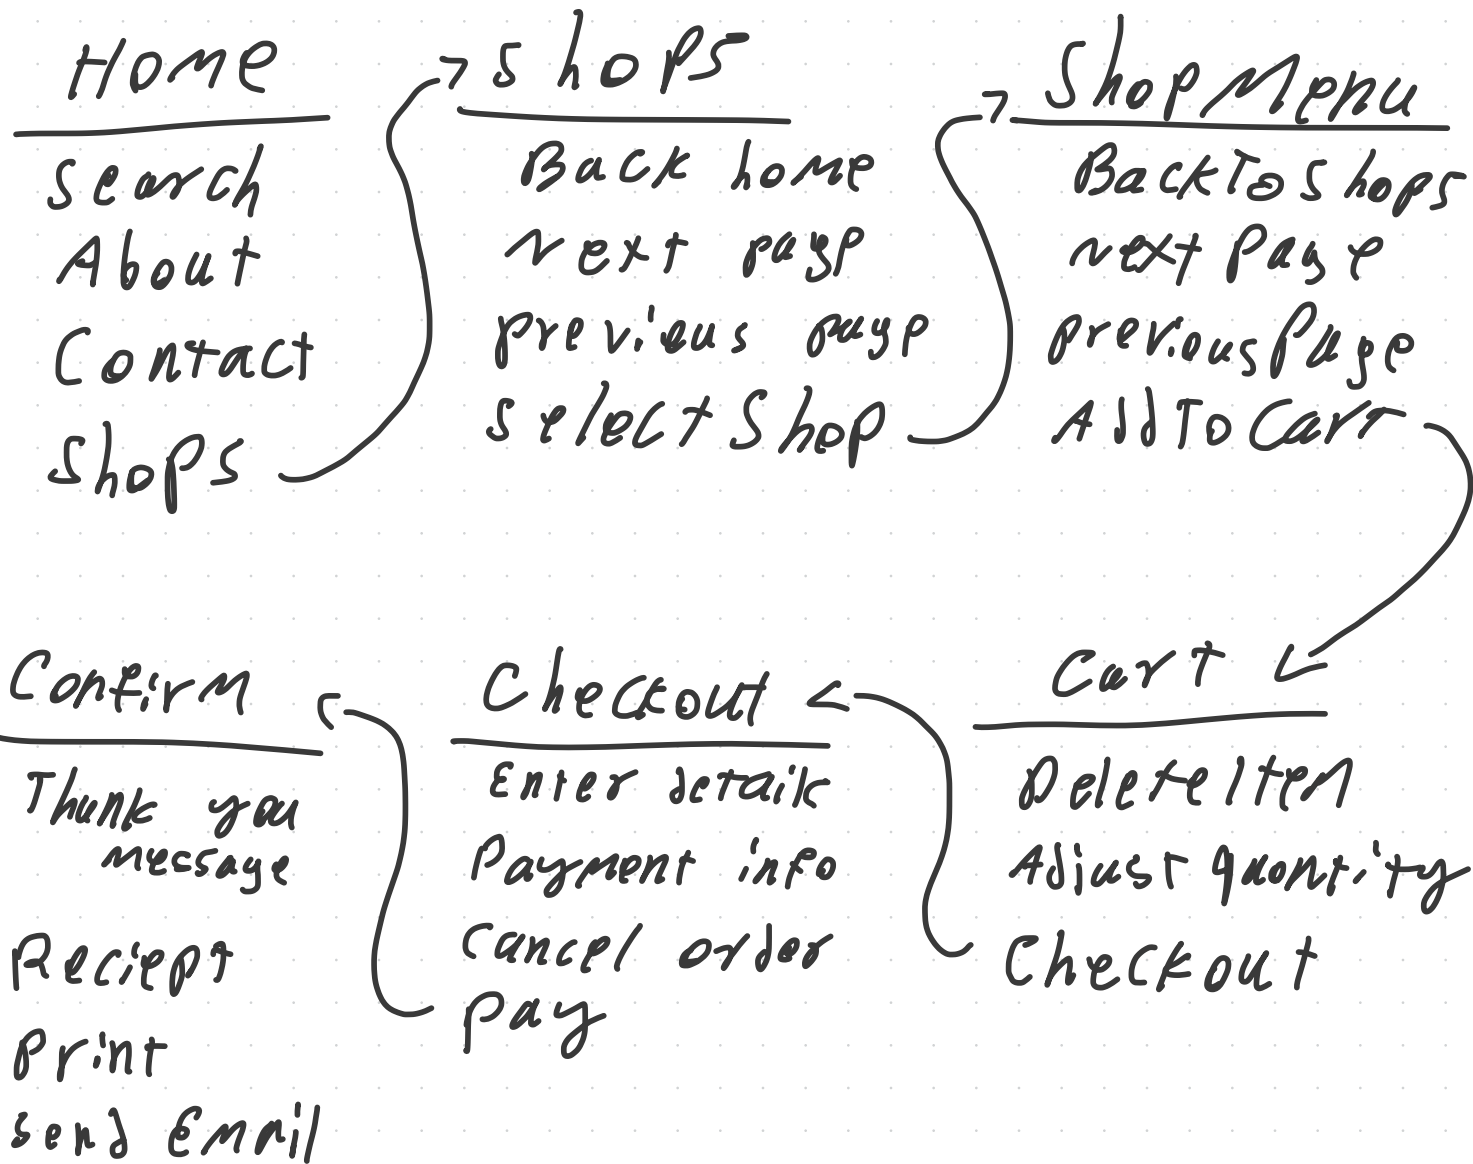 Home
Search
About
Contact
Shops
Shops
Back home
Next page
previous page
select Shop
Shop Menu
Back To Shops
Next Page
previous Page
Add To Cart
Confirm
Thank you
message
Reciept
Print
Send Email
Checkout
Enter details
Payment info
Cancel order
pay
Cart
Delete Item
Adjust quantity
Checkout